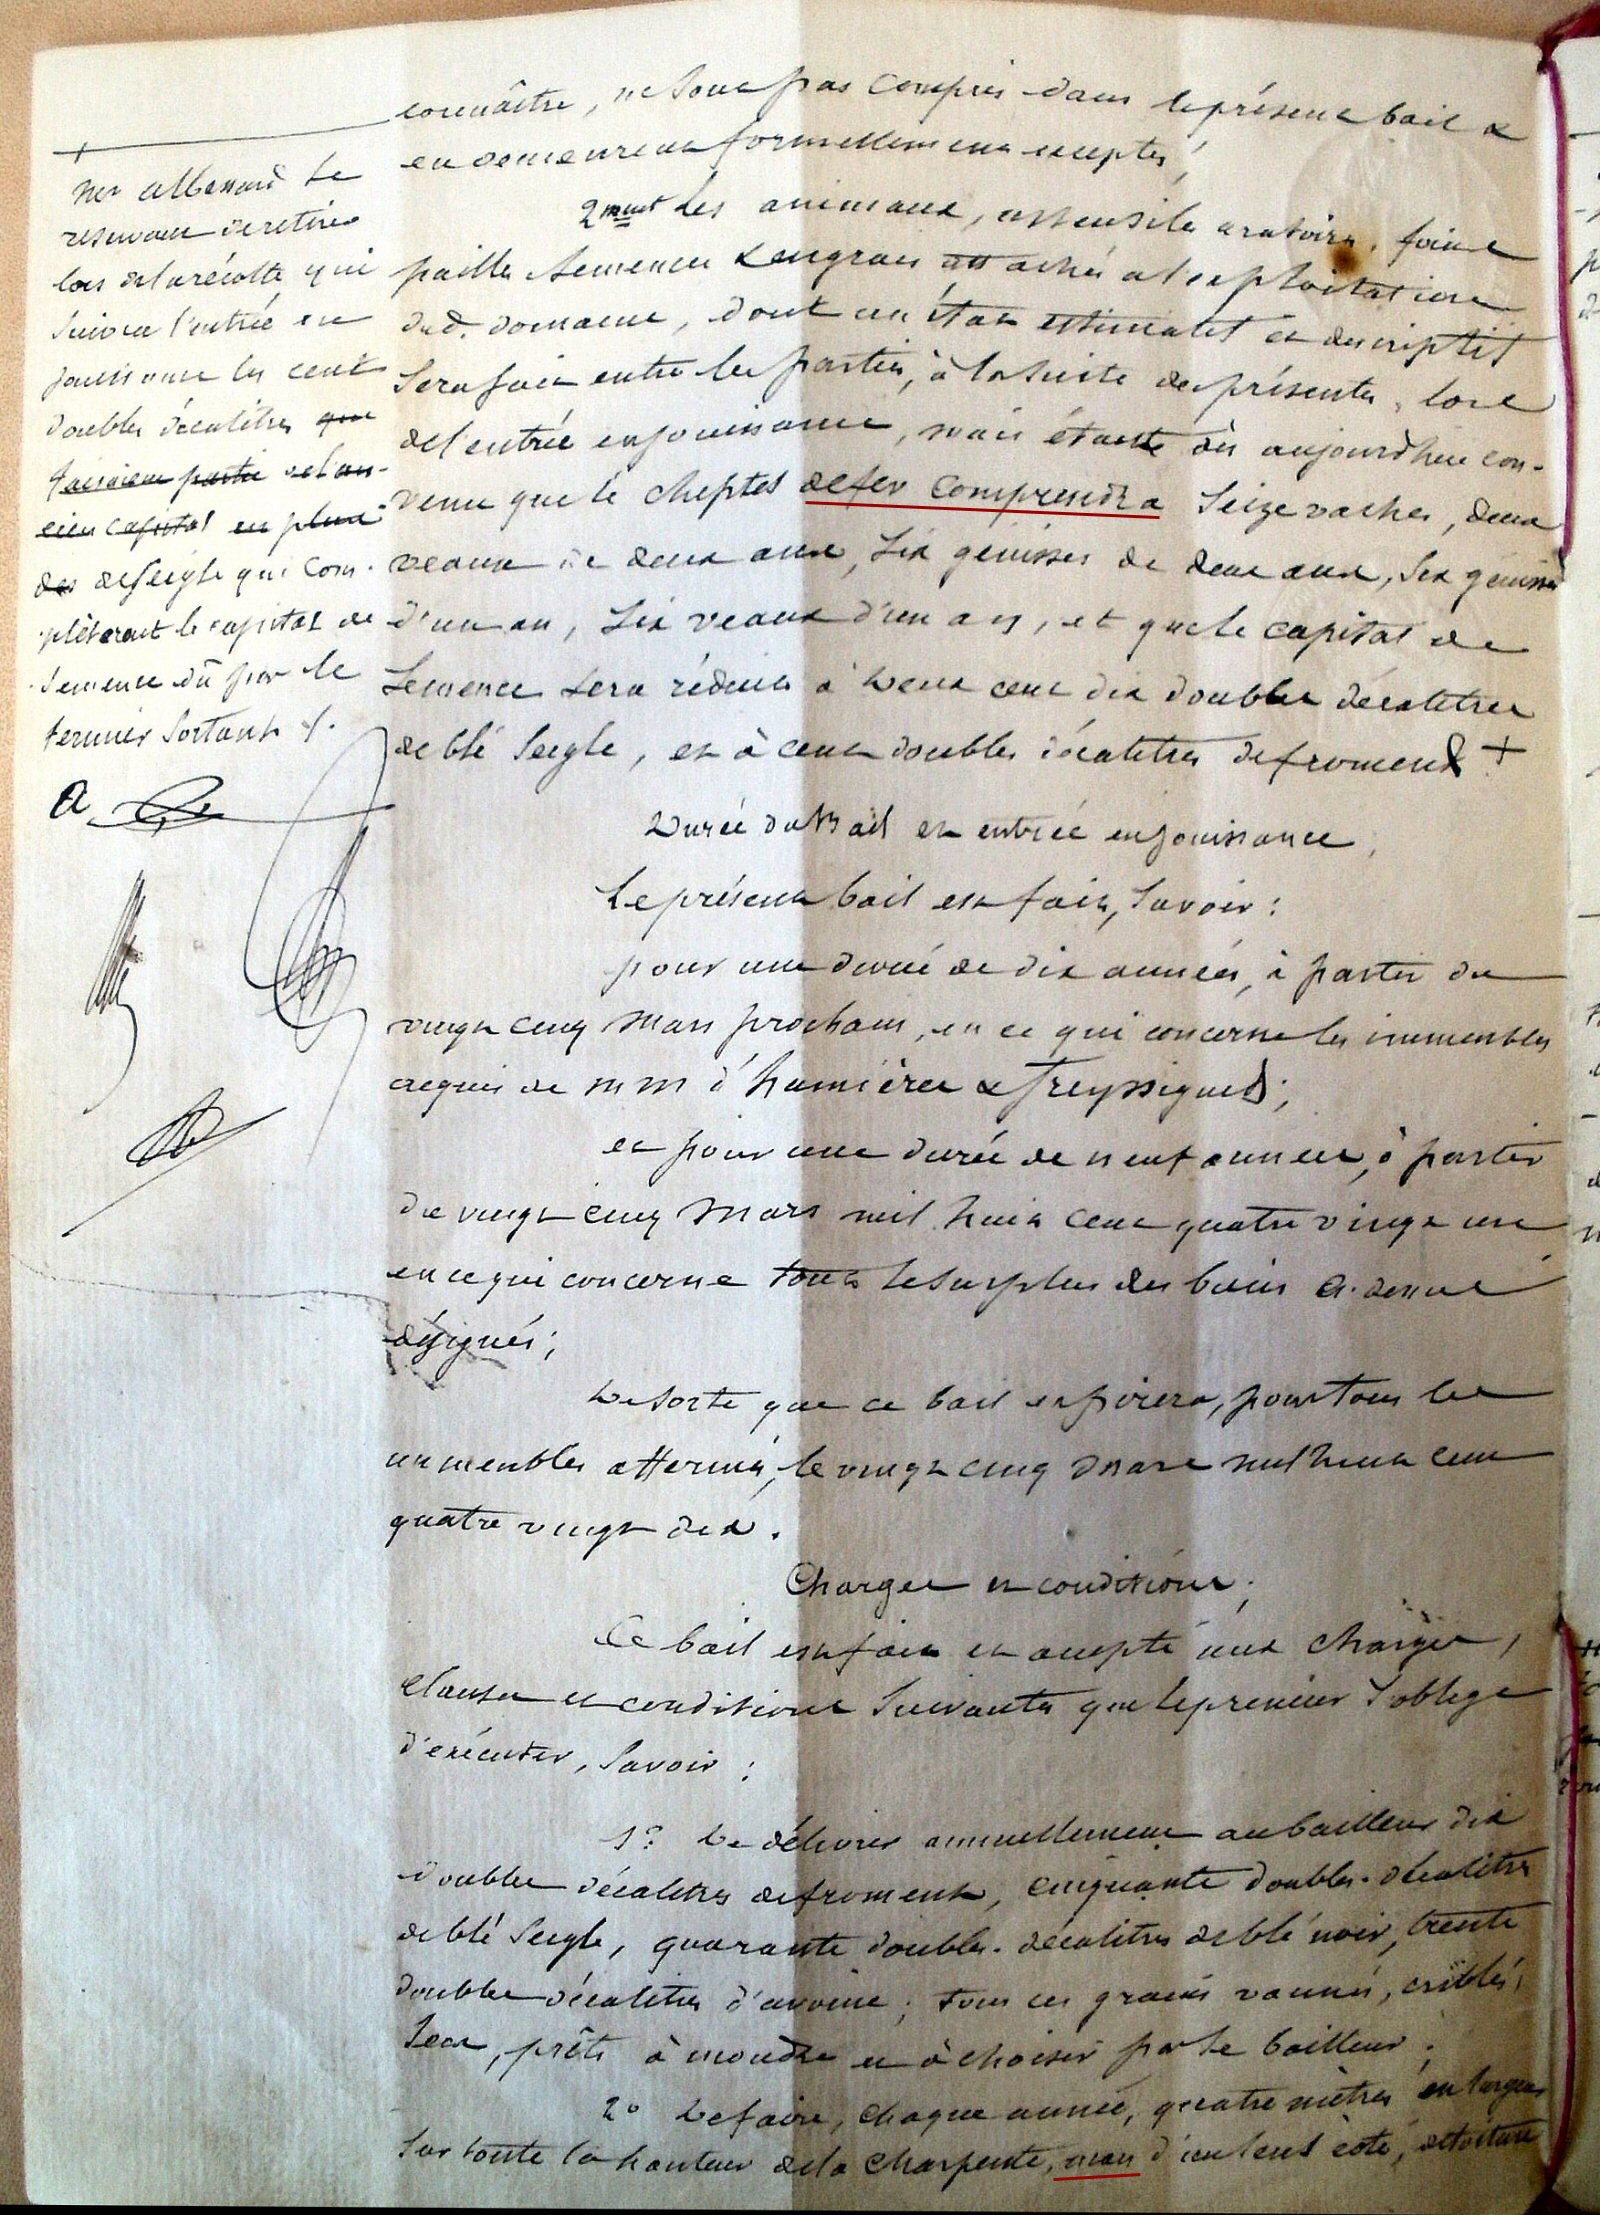 connaître, ne sont pas compris dans le présent bail &
en demeurent formellement exceptés;
2ment Les animaux, ustensiles aratoires, foins
pailles semences & engrais attachés à l'exploitation
dud. domaine, dont un état estimatif et descriptif
sera fait entre les parties, à la suite des présentes, lors
de l'entrée en jouissance, mais étant dès aujourd'hui con-
venu que le cheptel de fer comprendra seize vaches, deux
veaux de deux ans, six génisses de deux ans, six génisses
d'un an, six veaux d'un an, et que le capital de
semence sera réduit à deux cent dix doubles décalitres
de blé seigle, et à cent doubles décalitres de froment +
+
Mr Albessard se
réservant de retirer
lors de la récolte qui
suivra l'entrée en
jouissance les cent
doubles décalitres que
faisaient partie de l'an-
cien capital en plus
des de seigle qui com-
plèteront le capital de
semence dû par le
fermier sortant /.
a
Durée du Bail et entrée en jouissance;
Le présent bail est fait, savoir :
pour une durée de dix années, à partir du
vingt cinq Mars prochain, en ce qui concerne les immeubles
acquis de MM d'humières & Freyssignet;
et pour une durée de neuf années, à partir
du vingt cinq Mars mil huit cent quatre vingt un
en ce qui concerne tout le surplus des biens ci-dessus
désignés;
De sorte que ce bail expirera, pour tous les
immeubles affermés, le vingt cinq mars mil huit cent
quatre vingt dix.
Charges et conditions;
Ce bail est fait et accepté aux charges,
clauses et conditions suivantes que le preneur s'oblige
d'exécuter, savoir :
1° De délivrer annuellement au bailleur dix
doubles décalitres de froment, cinquante doubles-décalitres
de blé seigle, quarante doubles-décalitres de blé noir, trente
doubles décalitres d'avoine; tous ces grains vannés, criblés,
secs, prêts à moudre et à choisir par le bailleur;
2° De faire, chaque année, quatre mètres en largeur
sur toute la hauteur de la charpente, mais d'un seul côté, de toiture